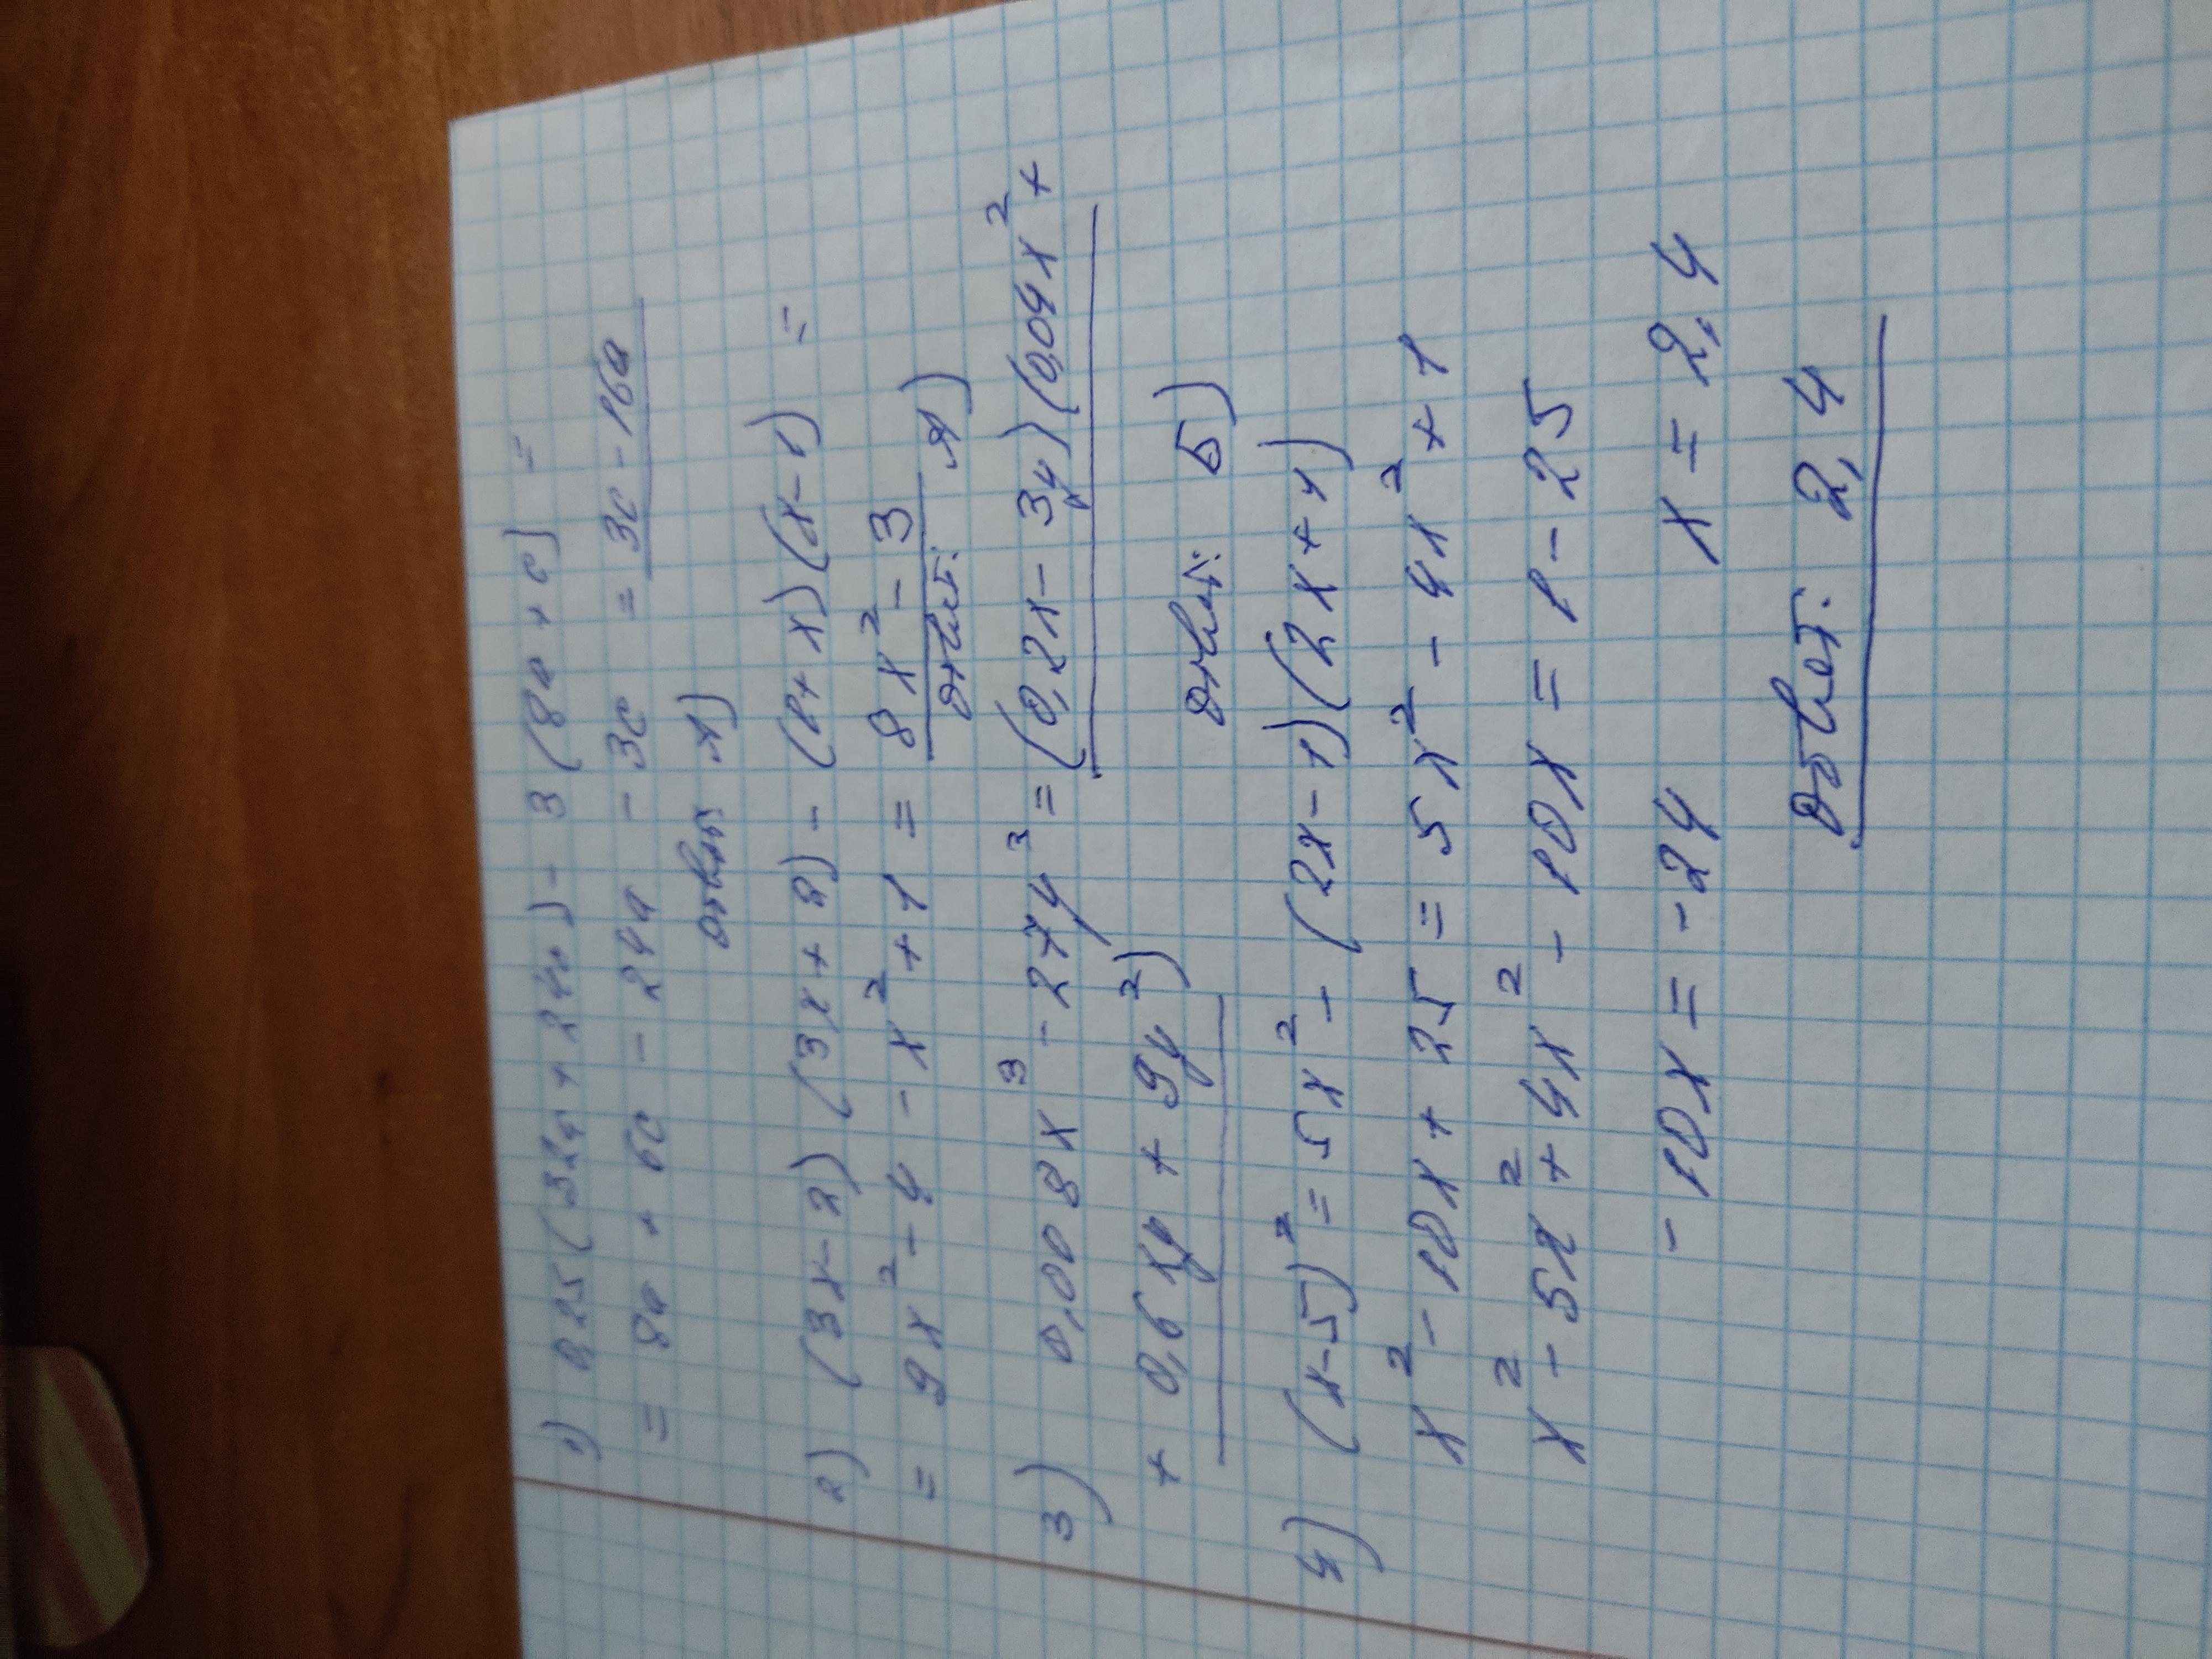 1) 0,25(32a + 24c) - 3(8a + c) =
= 8a + 6c - 24a - 3c = 3c - 16a
ответ
2) (3x-2)(3x+2) - (1+x)(x-1) =
= 9x² - 4 - x² + 1 = 8x² - 3
ответ:
3) 0,008x³ - 27y³ = (0,2x - 3y)(0,04x² +
+ 0,6xy + 9y²)
ответ: Б)
4) (x-5)² = 5x² - (2x-1)(2x+1)
x² - 10x + 25 = 5x² - 4x² + 1
x² - 5x² + 4x² - 10x = 1 - 25
- 10x = -24 x = 2,4
Ответ: 2,4